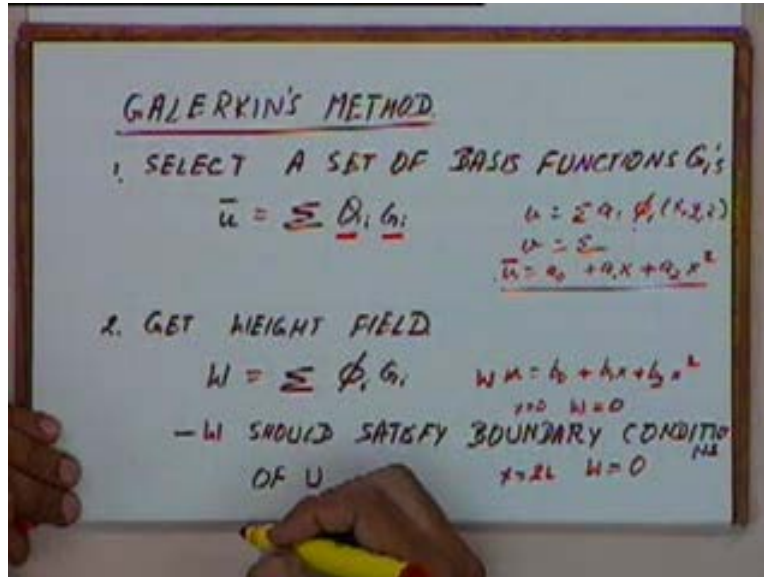 GALERKIN'S METHOD
1. SELECT A SET OF BASIS FUNCTIONS Gi's
ū = Σ Qi Gi
u = Σ ai φi (x,y,z)
v = Σ
ū = a0 + a1x + a2x²
2. GET WEIGHT FIELD
W = Σ φi Gi
W = b0 + b1x + b2x²
x=0 W=0
- W SHOULD SATISFY BOUNDARY CONDITIONS
OF U
x=2L W=0